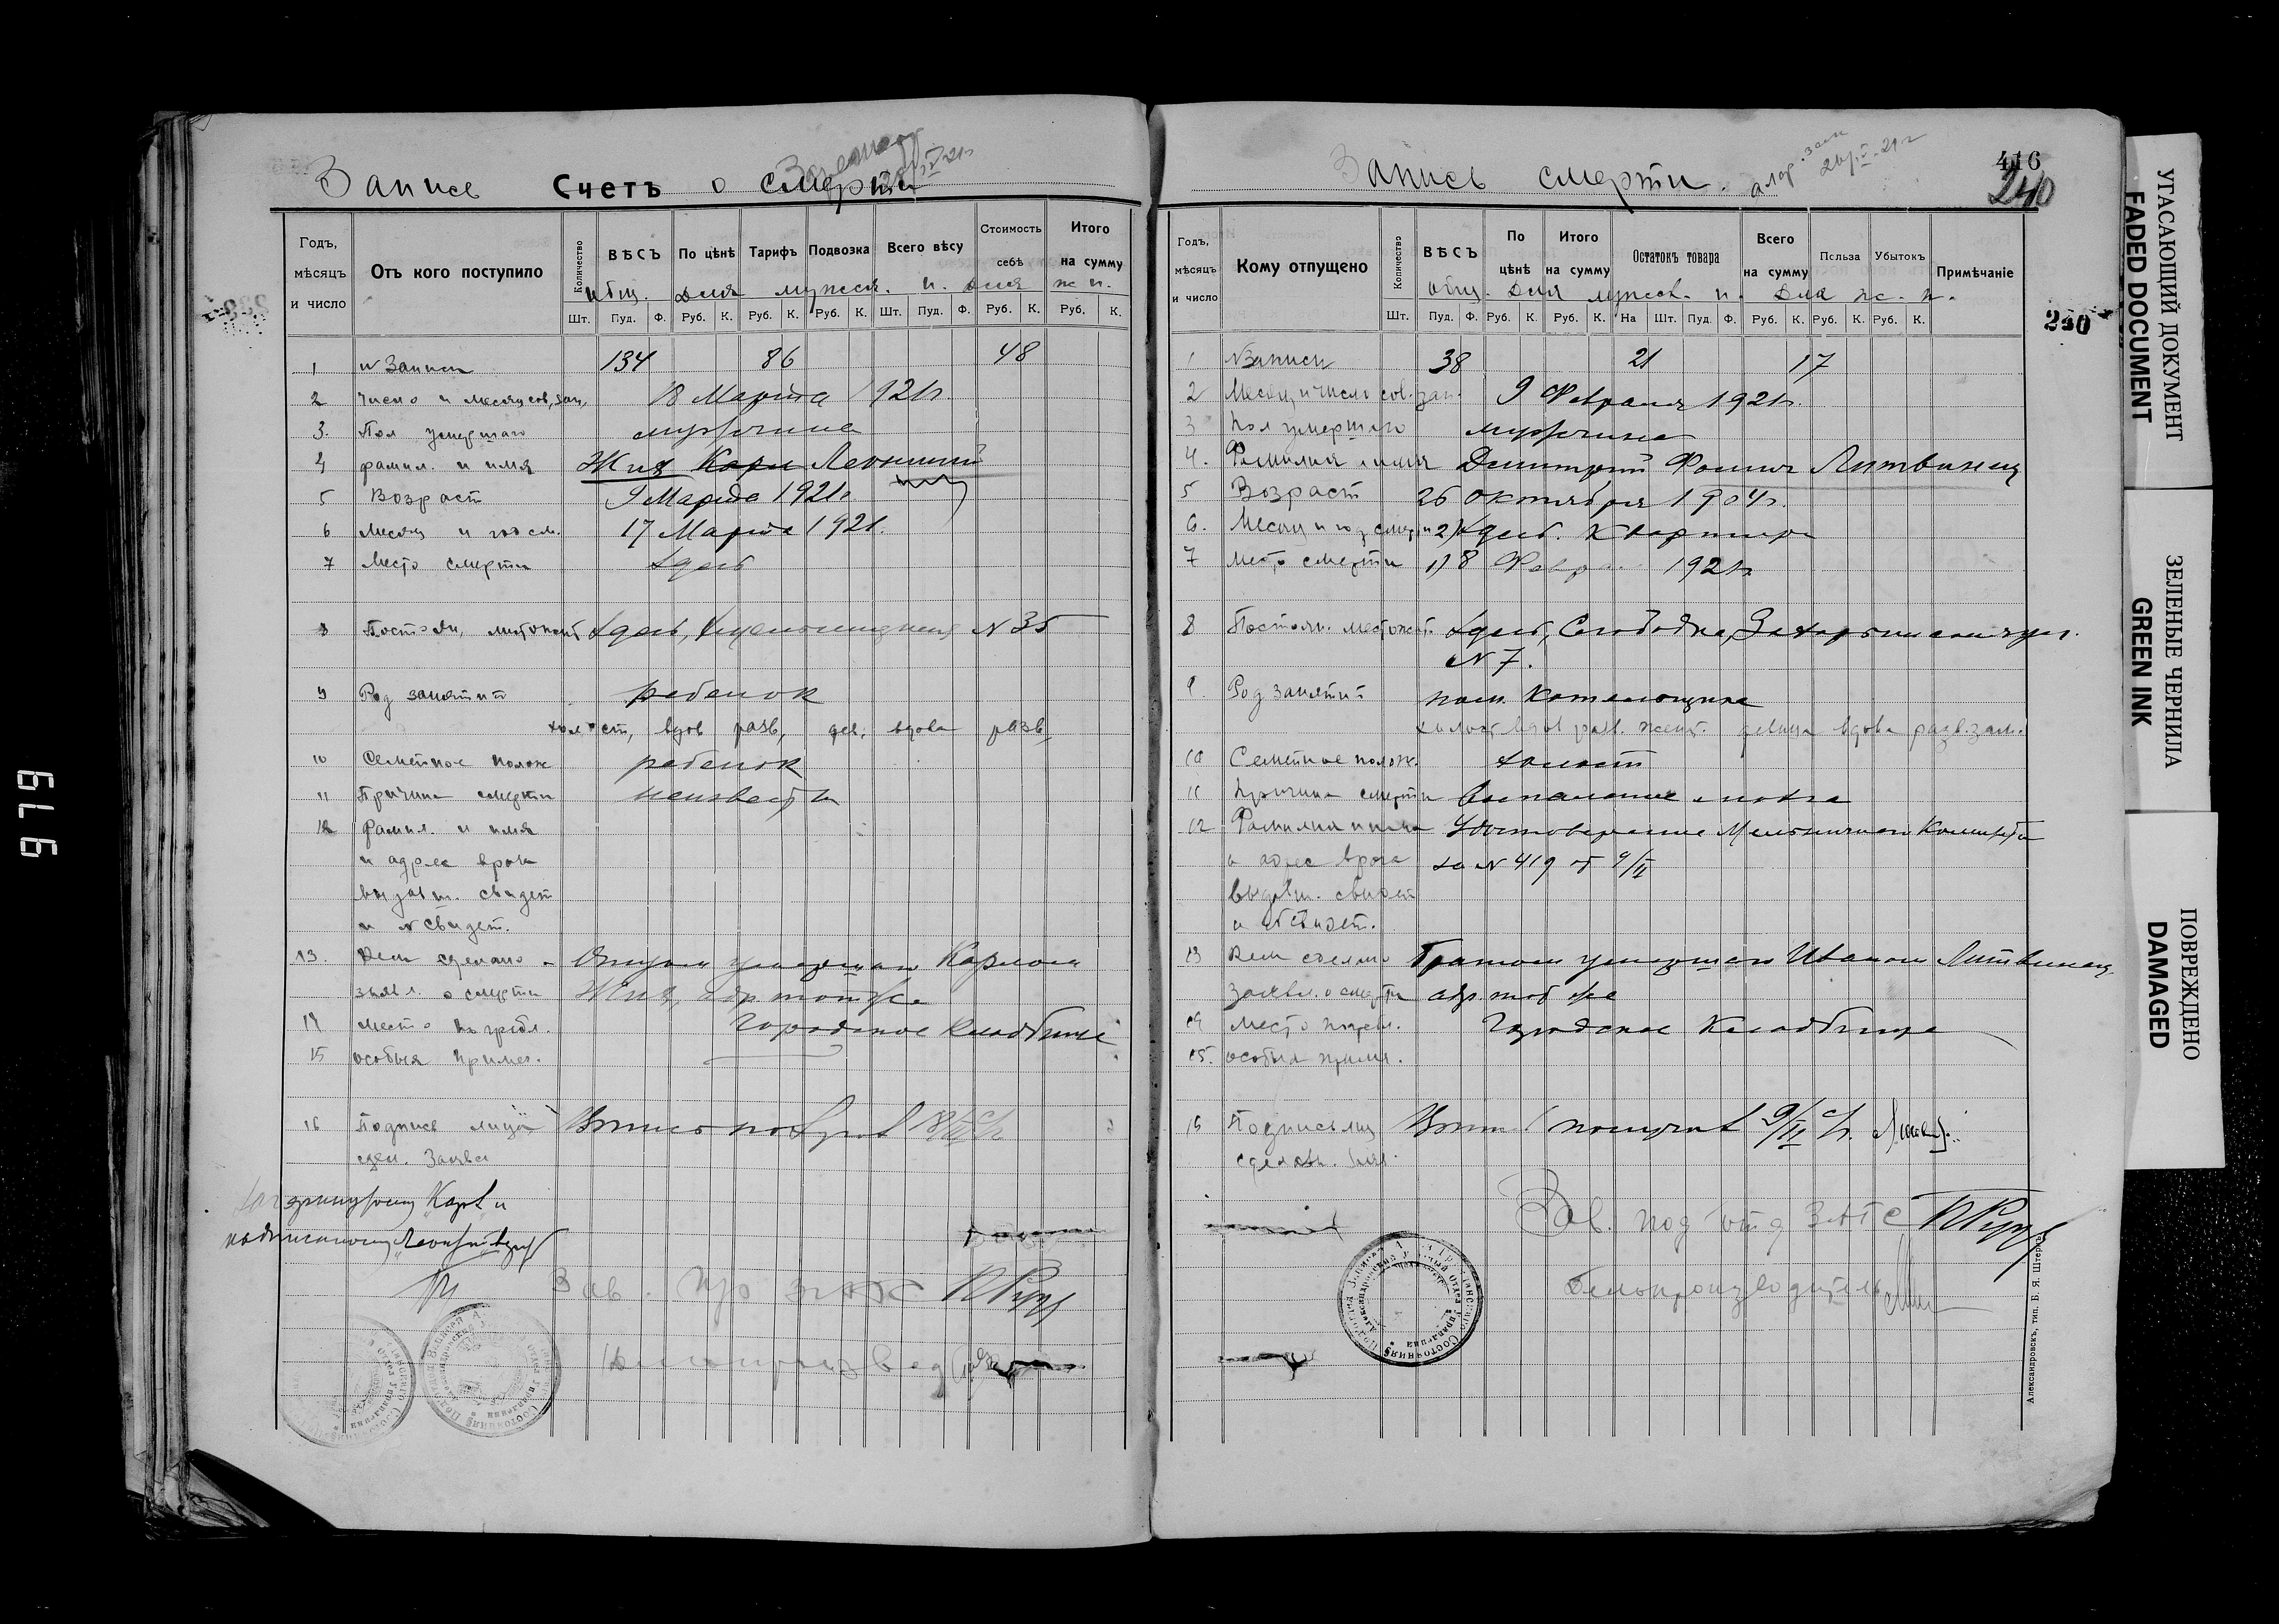 Запись Счетъ о смерти
Годъ, мѣсяцъ и число
Отъ кого поступило
Количество
ВѢСЪ
По цѣнѣ
Тарифъ
Подвозка
Всего вѣсу
Стоимость себѣ
Итого на сумму
общ. для мужск. п. для ж. п.
Шт. Пуд. Ф. Руб. К. Руб. К. Руб. К. Шт. Пуд. Ф. Руб. К. Руб. К.
1 N Записи 134 86 48
2 число и месяц сов. зап. 18 Марта 1921г.
3. Пол умершаго мужчина
4 фамил. и имя Жия Карл Леонтий
5 Возраст 9 Марта 1921г.
6 Месяц и год см. 17 Марта 1921.
7 Место смерти здесь
8 Постоян. местожит здесь, N 35
9 Род занятий ребенок
холост, вдов разв, дев, вдова разв,
10 Семейное полож ребенок
11 Причина смерти неизвестн
12 Фамил. и имя
и адрес врача
выдавш. свидет
и N свидет.
13. Кем сделано Отцом умершаго Карлом
заявл. о смерти Жия, адр. тот же
14 место погребл. городское кладбище
15 особыя примеч.
16 Подпись лица
сдел. Заявл
зачеркнутому "Карл" и
надписанному "Леонтий" верить
Зав.
416
240
230
Запись смерти.
Годъ, мѣсяцъ и число
Кому отпущено
Количество
ВѢСЪ
По цѣнѣ
Итого на сумму
Остатокъ товара
Всего на сумму
Польза
Убытокъ
Примѣчаніе
общ. для мужск. п. для ж. п.
Шт. Пуд. Ф. Руб. К. Руб. К. На Шт. Пуд Ф. Руб. К. Руб. К. Руб. К.
1 N Записи 38 21 17
2 Месяц и число сов. зап. 9 Февраля 1921г.
3 Пол умершаго мужчина
4. Фамилия и имя Дмитрий Фомич Литвинец
5 Возраст 26 октября 1904г.
6. Месяц и год смерти 2) здесь. квартира
7 Место смерти 1) 8 Февр 1921г.
8 Постоян. местожит. здесь, Слободка,
N 7.
9. Род занятий пом. котельщика
холост вдов разв. женат. девица вдова разв. зам.
10 Семейное полож. холост
11 Причина смерти воспаление мозга
12 Фамилия и имя Удостоверение
и адрес врача за N 419 от 9/II
выдавш. свидет
и N свидет.
13 Кем сделано Братом умершаго Иваном Литвинец,
заявл. о смерти адр. тот же
14 место погреб. Городское кладбище
15. особыя примеч.
16 Подпись лиц
сделавш. заявл.
Зав. под отд ЗАГС
Делопроизводитель
Александровскъ, тип. Б. Я. Штернъ
УГАСАЮЩИЙ ДОКУМЕНТ
FADED DOCUMENT
ЗЕЛЕНЫЕ ЧЕРНИЛА
GREEN INK
ПОВРЕЖДЕНО
DAMAGED
679